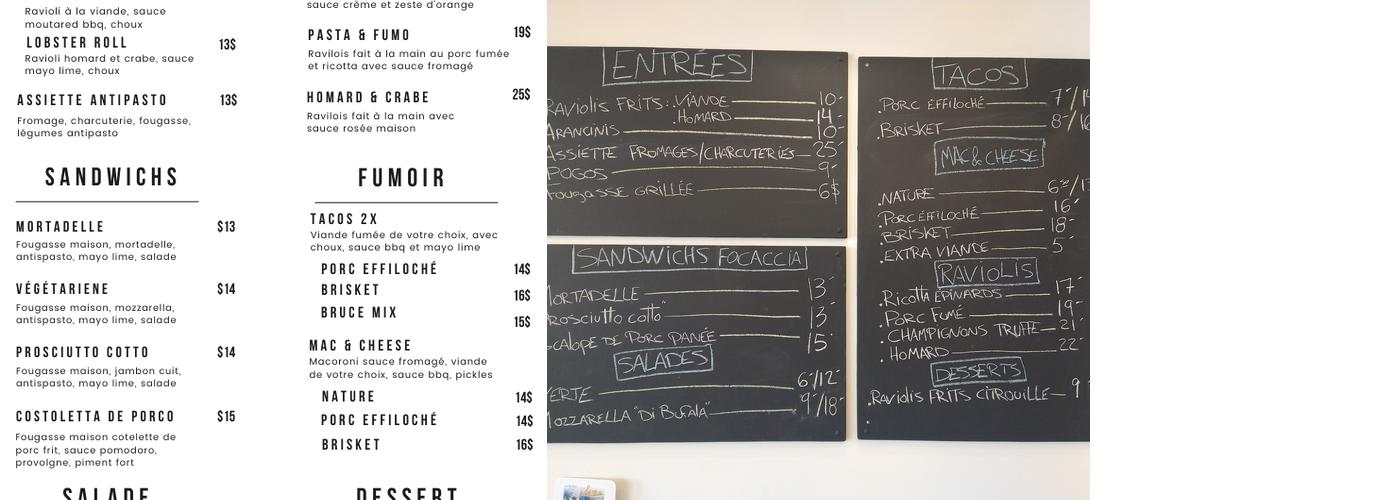 Ravioli à la viande, sauce
moutared bbq, choux
LOBSTER ROLL 13$
Ravioli homard et crabe, sauce
mayo lime, choux
ASSIETTE ANTIPASTO 13$
Fromage, charcuterie, fougasse,
légumes antipasto
SANDWICHS
MORTADELLE $13
Fougasse maison, mortadelle,
antispasto, mayo lime, salade
VÉGÉTARIENE $14
Fougasse maison, mozzarella,
antispasto, mayo lime, salade
PROSCIUTTO COTTO $14
Fougasse maison, jambon cuit,
antispasto, mayo lime, salade
COSTOLETTA DE PORCO $15
Fougasse maison cotelette de
porc frit, sauce pomodoro,
provolgne, piment fort
SALADE
sauce crème et zeste d'orange
PASTA & FUMO 19$
Ravilois fait à la main au porc fumée
et ricotta avec sauce fromagé
HOMARD & CRABE 25$
Ravilois fait à la main avec
sauce rosée maison
FUMOIR
TACOS 2X
Viande fumée de votre choix, avec
choux, sauce bbq et mayo lime
PORC EFFILOCHÉ 14$
BRISKET 16$
BRUCE MIX 15$
MAC & CHEESE
Macoroni sauce fromagé, viande
de votre choix, sauce bbq, pickles
NATURE 14$
PORC EFFILOCHÉ 14$
BRISKET 16$
DESSERT
ENTRÉES
RAVIOLIS FRITS: .VIANDE 10-
.HOMARD 14-
ARANCINIS 10-
ASSIETTE FROMAGES/CHARCUTERIES 25-
POGOS 9-
FOUGASSE GRILLÉE 6$
SANDWICHS FOCACCIA
MORTADELLE 13-
PROSCIUTTO COTTO 13-
ESCALOPE DE PORC PANÉE 15-
SALADES
VERTE 6-/12-
MOZZARELLA "DI BUFALA" 9-/18-
TACOS
.PORC EFFILOCHÉ 7-/14
.BRISKET 8-/16
MAC & CHEESE
.NATURE
.PORC EFFILOCHÉ 16-
.BRISKET 18-
.EXTRA VIANDE 5-
RAVIOLIS
.RICOTTA EPINARDS 17-
.PORC FUMÉ 19-
.CHAMPIGNONS TRUFFE 21-
.HOMARD 22-
DESSERTS
.RAVIOLIS FRITS CITROUILLE 9